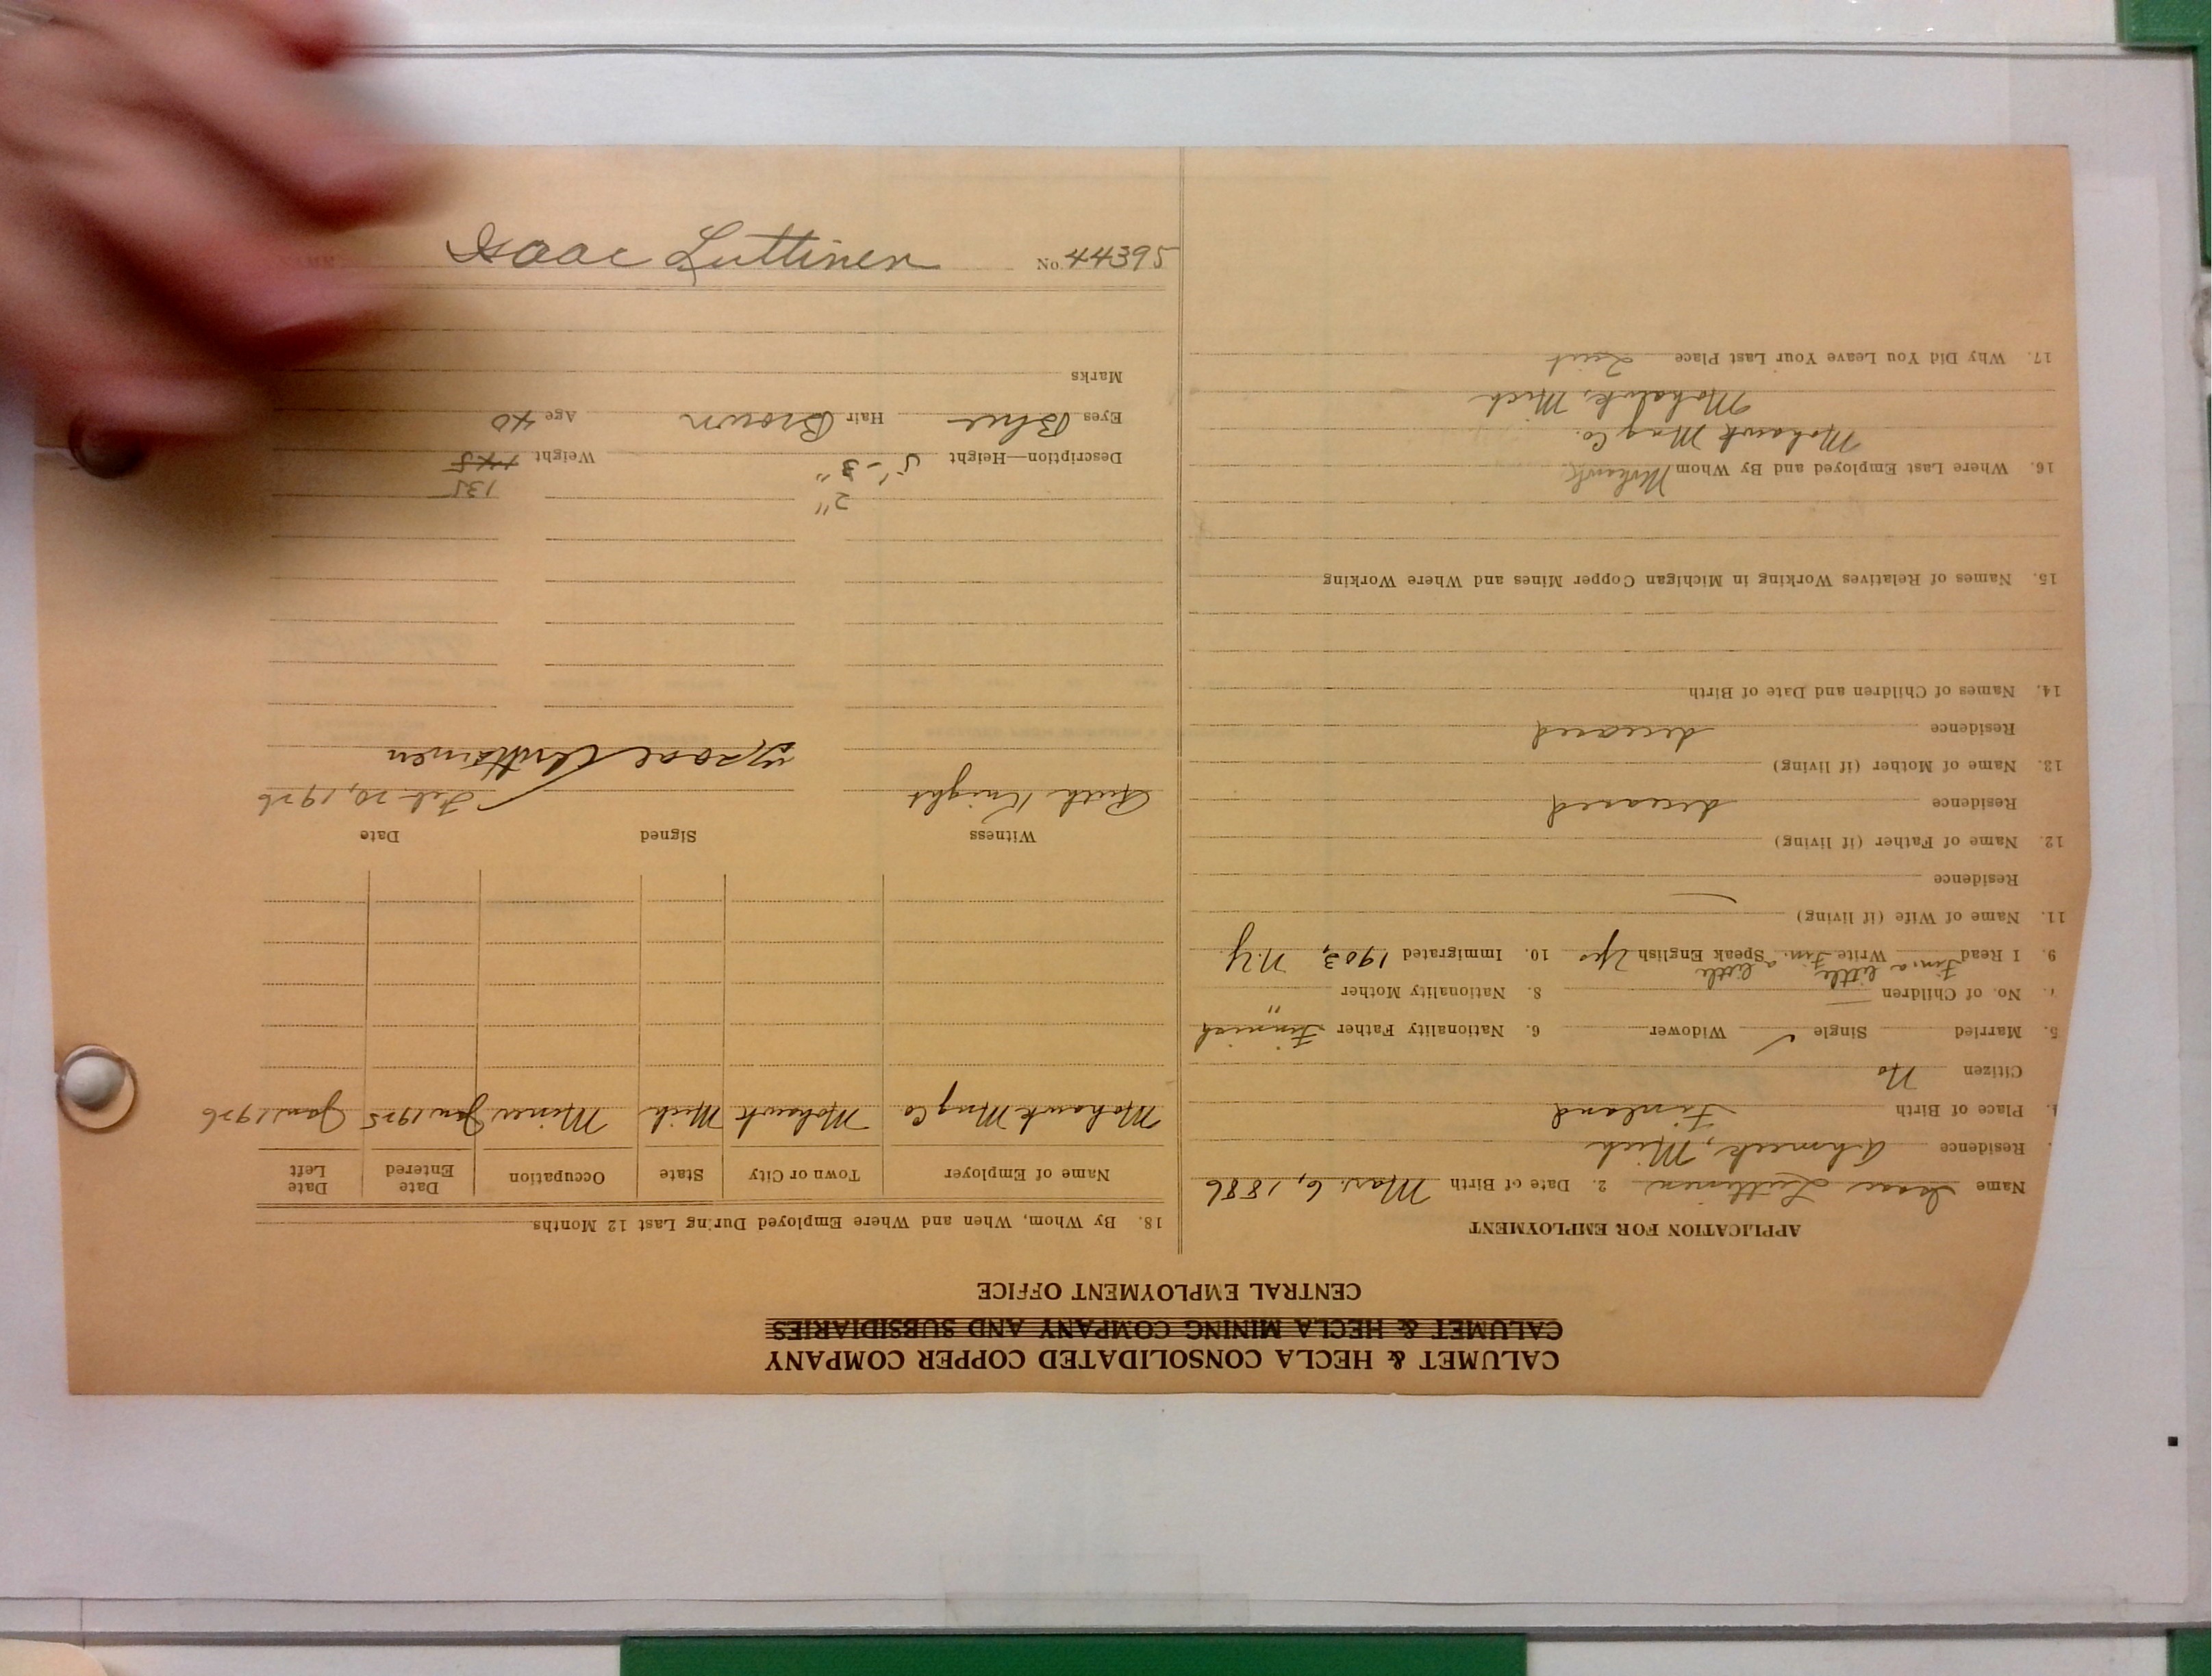 CALUMET & HECLA CONSOLIDATED COPPER COMPANY
CALUMET & HECLA MINING COMPANY AND SUBSIDIARIES
CENTRAL EMPLOYMENT OFFICE
APPLICATION FOR EMPLOYMENT
Name Isaac Luttinen 2. Date of Birth Mar. 6, 1886
Residence Ahmeek, Mich
Place of Birth Finland
Citizen No
5. Married Single ✓ Widower 6. Nationality Father Finnish
No. of Children — 8. Nationality Mother "
9. I Read Fin. a little Write Fin. a little Speak English Yes 10. Immigrated 1903, N.Y.
11. Name of Wife (if living)
Residence
12. Name of Father (if living)
Residence deceased
13. Name of Mother (if living)
Residence deceased
14. Names of Children and Date of Birth
15. Names of Relatives Working in Michigan Copper Mines and Where Working
16. Where Last Employed and By Whom Mohawk
Mohawk Mng Co.
Mohawk, Mich
17. Why Did You Leave Your Last Place Quit
18. By Whom, When and Where Employed During Last 12 Months
Name of Employer Town or City State Occupation Date Entered Date Left
Mohawk Mng Co Mohawk Mich Miner Jan 1925 Jan 1926
Witness Signed Date
Ruth Knight Feb. 20, 1926
Isaac
2" 135
Description—Height 5'-3" Weight 145
Eyes Blue Hair Brown Age 40
Marks
No. 44395 Isaac Luttinen